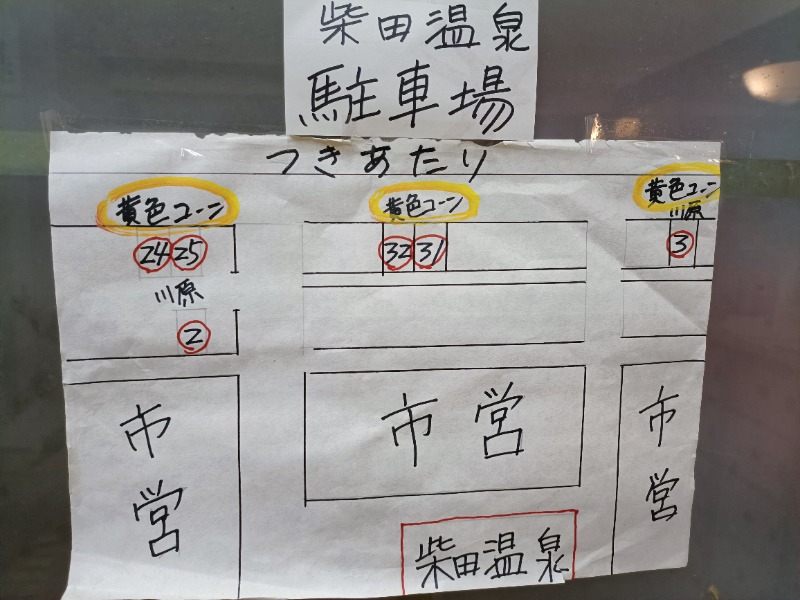 柴田温泉
駐車場
つきあたり
黄色コーン
黄色コーン
黄色コーン
川原
24 25
32 31
3
川原
2
市営
市営
市営
柴田温泉